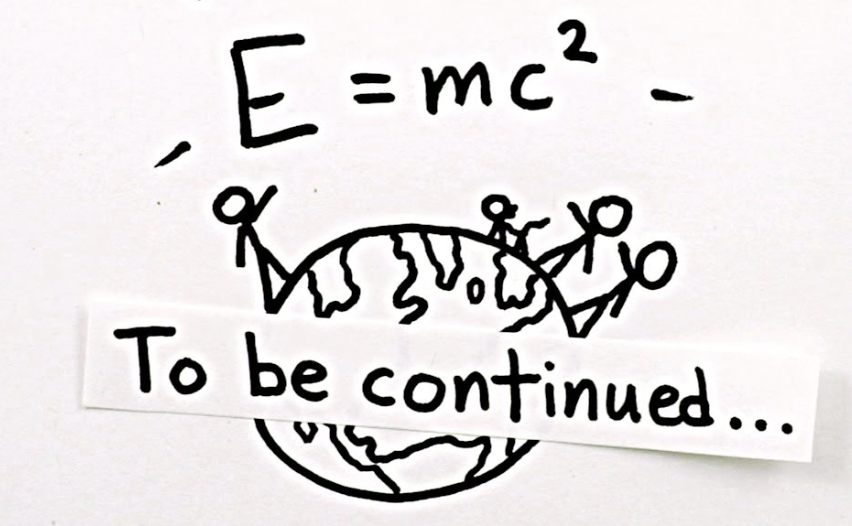 E = mc²
To be continued...